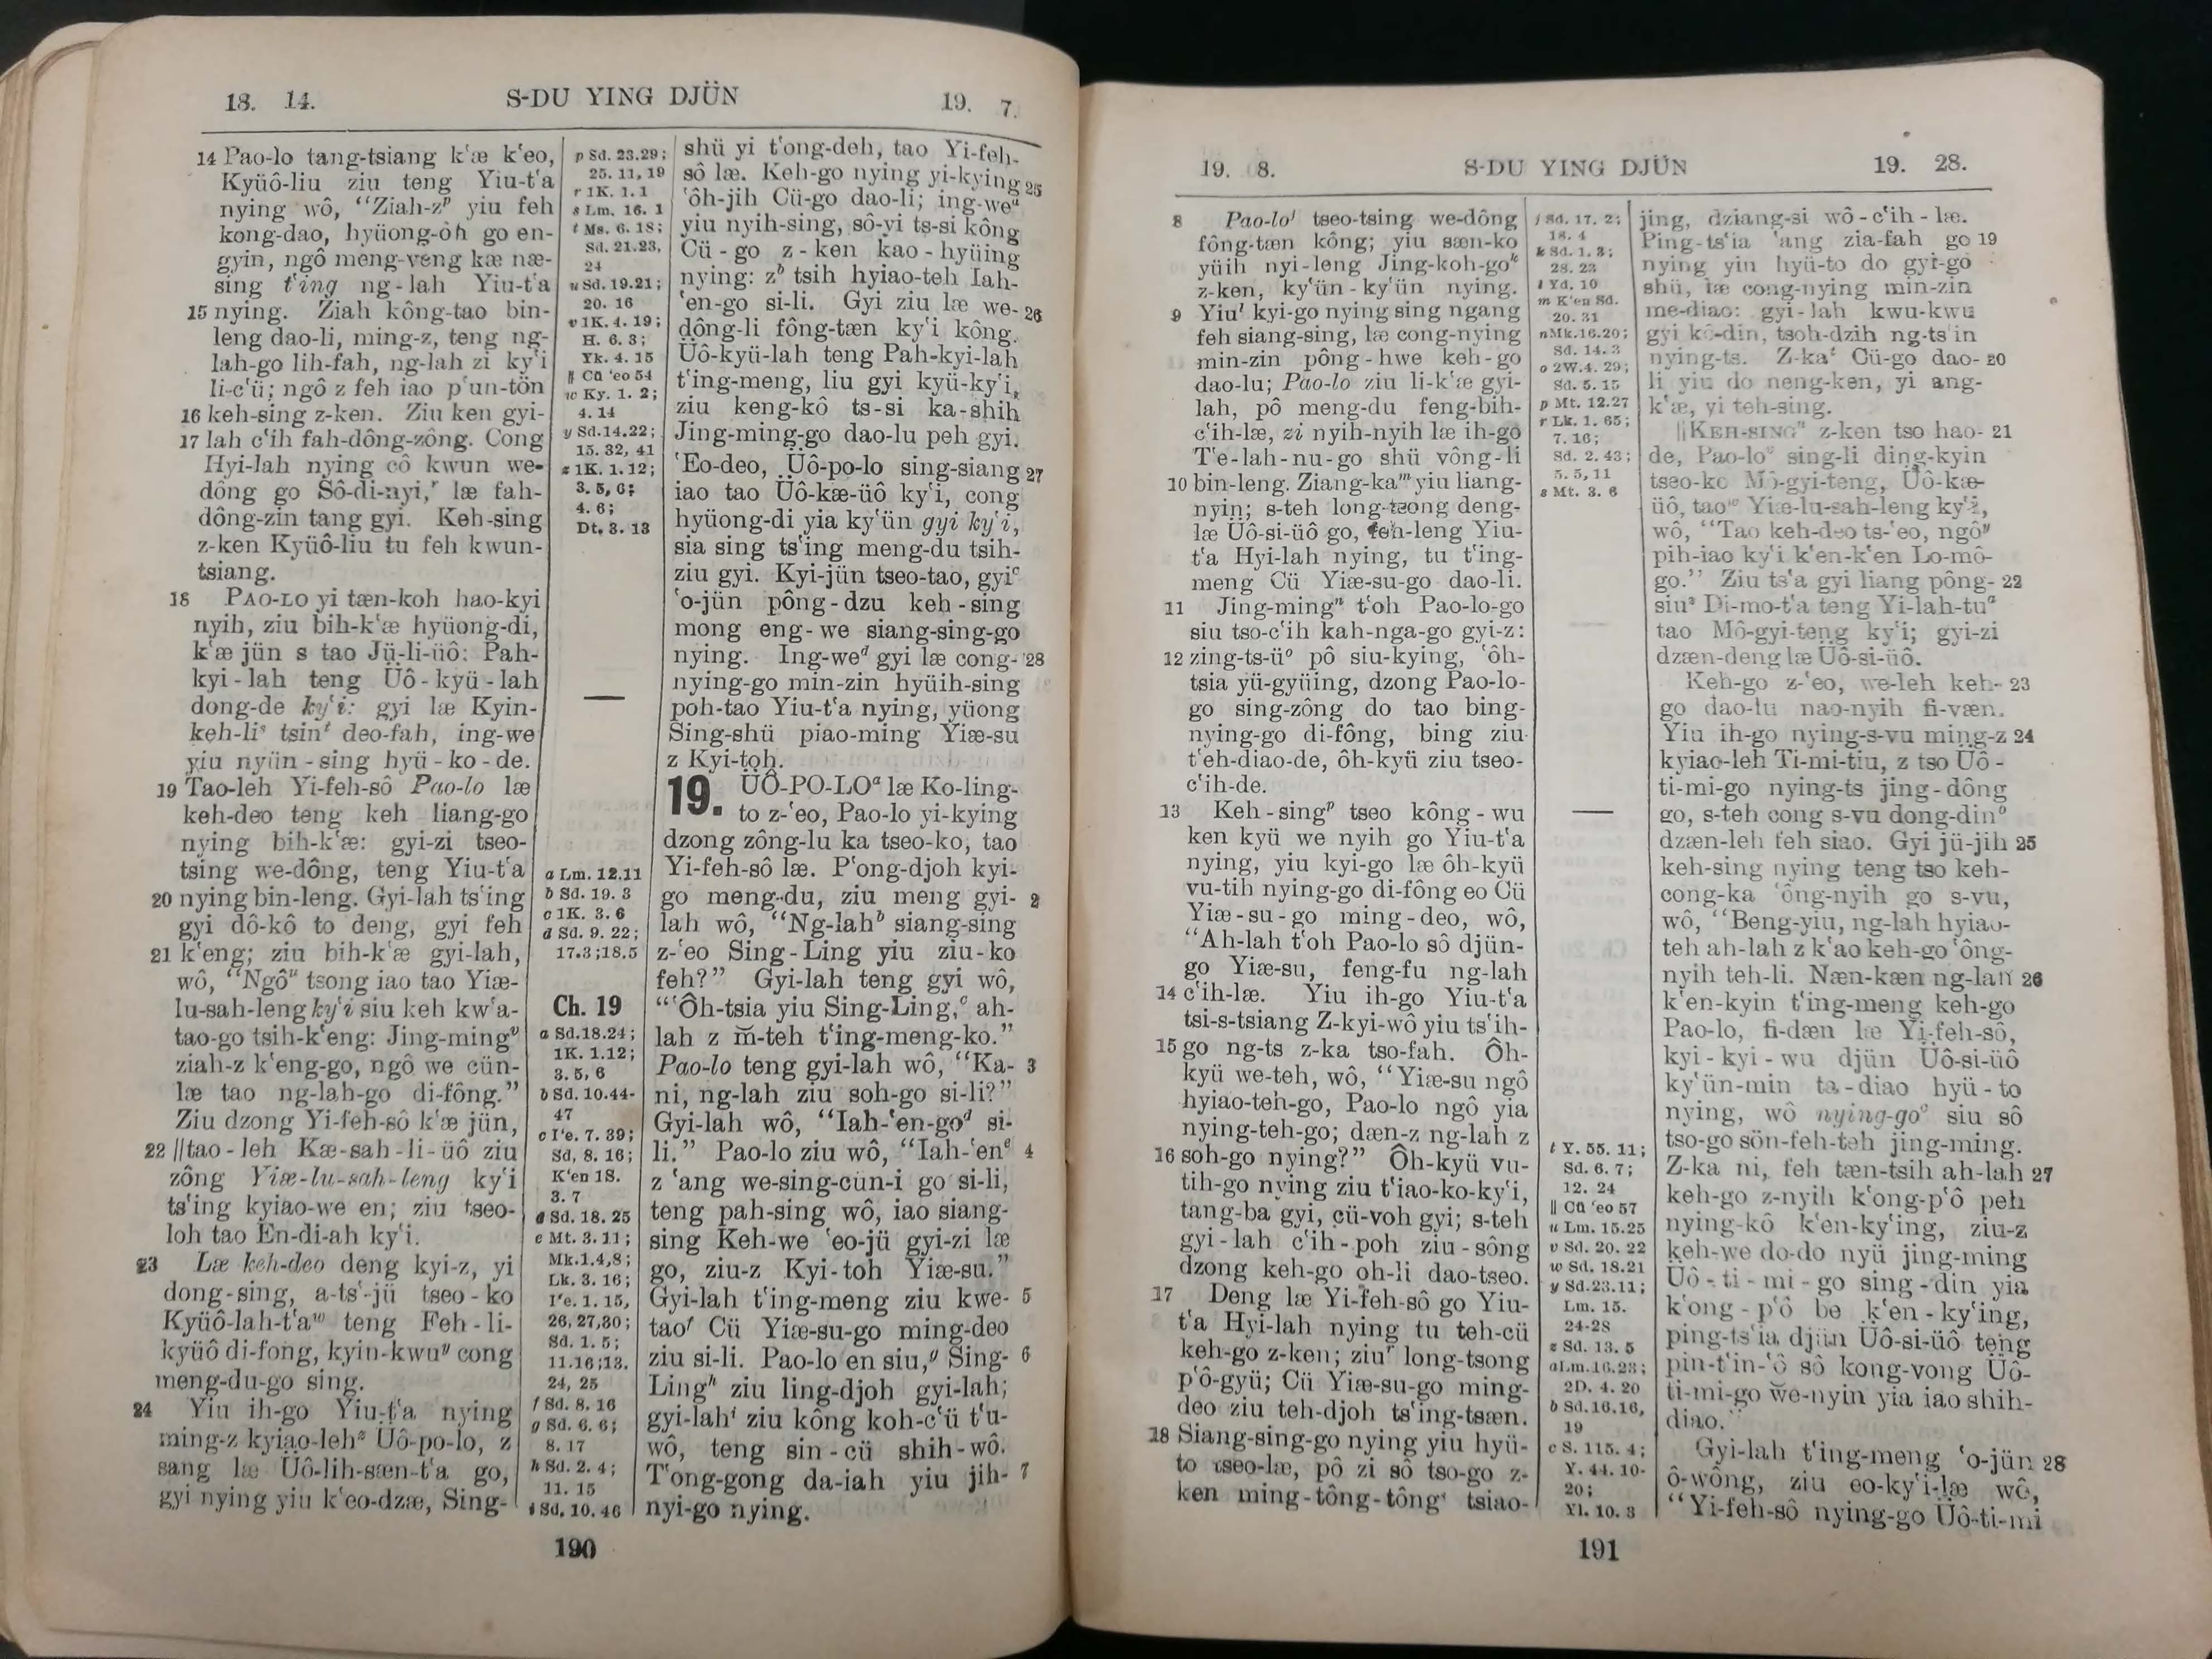 18. 14. S-DU YING DJÜN 19. 7.
14 Pao-lo tang-tsiang k‘æ k‘eo,
Kyüô-liu ziu teng Yiu-t‘a
nying wô, “Ziah-zᵖ yiu feh
kong-dao, hyüong-ôh go en-
gyin, ngô meng-veng kæ næ-
sing t‘ing ng-lah Yiu-t‘a
15 nying. Ziah kông-tao bin-
leng dao-li, ming-z, teng ng-
lah-go lih-fah, ng-lah zi ky‘i
li-c‘ü; ngô z feh iao p‘un-tön
16 keh-sing z-ken. Ziu ken gyi-
17 lah c‘ih fah-dông-zông. Cong
Hyi-lah nying cô kwun we-
dông go Sô-di-nyi,ʳ læ fah-
dông-zin tang gyi. Keh-sing
z-ken Kyüô-liu tu feh kwun-
tsiang.
18 PAO-LO yi tæn-koh hao-kyi
nyih, ziu bih-k‘æ hyüong-di,
k‘æ jün s tao Jü-li-üô: Pah-
kyi-lah teng Üô-kyü-lah
dong-de ky‘i: gyi læ Kyin-
keh-liˢ tsinᵗ deo-fah, ing-we
yiu nyün-sing hyü-ko-de.
19 Tao-leh Yi-feh-sô Pao-lo læ
keh-deo teng keh liang-go
nying bih-k‘æ: gyi-zi tseo-
tsing we-dông, teng Yiu-t‘a
20 nying bin-leng. Gyi-lah ts‘ing
gyi dô-kô to deng, gyi feh
21 k‘eng; ziu bih-k‘æ gyi-lah,
wô, “Ngôᵘ tsong iao tao Yiæ-
lu-sah-leng ky‘i siu keh kw‘a-
tao-go tsih-k‘eng: Jing-mingᵛ
ziah-z k‘eng-go, ngô we cün-
læ tao ng-lah-go di-fông.”
Ziu dzong Yi-feh-sô k‘æ jün,
22 ‖tao-leh Kæ-sah-li-üô ziu
zông Yiæ-lu-sah-leng ky‘i
ts‘ing kyiao-we en; ziu tseo-
loh tao En-di-ah ky‘i.
23 Læ keh-deo deng kyi-z, yi
dong-sing, a-ts‘-jü tseo-ko
Kyüô-lah-t‘aʷ teng Feh-li-
kyüô di-fong, kyin-kwuʸ cong
meng-du-go sing.
24 Yiu ih-go Yiu-t‘a nying
ming-z kyiao-lehᶻ Üô-po-lo, z
sang læ Üô-lih-sæn-t‘a go,
gyi nying yiu k‘eo-dzæ, Sing-
p Sd. 23.29;
25. 11, 19
r 1K. 1.1
s Lm. 16. 1
t Ms. 6. 18;
Sd. 21.23,
24
u Sd. 19.21;
20. 16
v 1K. 4. 19;
H. 6. 3;
Yk. 4. 15
‖ Cü ‘eo 54
w Ky. 1. 2;
4. 14
y Sd.14.22;
15. 32, 41
z 1K. 1.12;
3. 5, 6;
4. 6;
Dt. 3. 13
a Lm. 12.11
b Sd. 19. 3
c 1K. 3. 6
d Sd. 9. 22;
17.3;18.5
Ch. 19
a Sd.18.24;
1K. 1.12;
3. 5, 6
b Sd. 10.44-
47
c I‘e. 7. 39;
Sd. 8. 16;
K‘en 18.
3. 7
d Sd. 18. 25
e Mt. 3. 11;
Mk.1.4,8;
Lk. 3. 16;
I‘e. 1. 15,
26,27,30;
Sd. 1. 5;
11.16;13.
24, 25
f Sd. 8. 16
g Sd. 6. 6;
8. 17
h Sd. 2. 4;
11. 15
i Sd. 10. 46
shü yi t‘ong-deh, tao Yi-feh-
sô læ. Keh-go nying yi-kying 25
‘ôh-jih Cü-go dao-li; ing-weᵃ
yiu nyih-sing, sô-yi ts-si kông
Cü-go z-ken kao-hyüing
nying: zᵇ tsih hyiao-teh Iah-
‘en-go si-li. Gyi ziu læ we- 26
dông-li fông-tæn ky‘i kông.
Üô-kyü-lah teng Pah-kyi-lah
t‘ing-meng, liu gyi kyü-ky‘i,
ziu keng-kô ts-si ka-shih
Jing-ming-go dao-lu peh gyi.
‘Eo-deo, Üô-po-lo sing-siang 27
iao tao Üô-kæ-üô ky‘i, cong
hyüong-di yia ky‘ün gyi ky‘i,
sia sing ts‘ing meng-du tsih-
ziu gyi. Kyi-jün tseo-tao, gyiᶜ
‘o-jün pông-dzu keh-sing
mong eng-we siang-sing-go
nying. Ing-weᵈ gyi læ cong- 28
nying-go min-zin hyüih-sing
poh-tao Yiu-t‘a nying, yüong
Sing-shü piao-ming Yiæ-su
z Kyi-toh.
19. ÜÔ-PO-LOᵃ læ Ko-ling-
to z-‘eo, Pao-lo yi-kying
dzong zông-lu ka tseo-ko, tao
Yi-feh-sô læ. P‘ong-djoh kyi-
go meng-du, ziu meng gyi- 2
lah wô, “Ng-lahᵇ siang-sing
z-‘eo Sing-Ling yiu ziu-ko
feh?” Gyi-lah teng gyi wô,
“‘Ôh-tsia yiu Sing-Ling,ᶜ ah-
lah z m̆-teh t‘ing-meng-ko.”
Pao-lo teng gyi-lah wô, “Ka- 3
ni, ng-lah ziu soh-go si-li?”
Gyi-lah wô, “Iah-‘en-goᵈ si-
li.” Pao-lo ziu wô, “Iah-‘enᵉ 4
z ‘ang we-sing-cün-i go si-li,
teng pah-sing wô, iao siang-
sing Keh-we ‘eo-jü gyi-zi læ
go, ziu-z Kyi-toh Yiæ-su.”
Gyi-lah t‘ing-meng ziu kwe- 5
taoᶠ Cü Yiæ-su-go ming-deo
ziu si-li. Pao-lo en siu,ᵍ Sing- 6
Lingʰ ziu ling-djoh gyi-lah;
gyi-lahⁱ ziu kông koh-c‘ü t‘u-
wô, teng sin-cü shih-wô.
T‘ong-gong da-iah yiu jih- 7
nyi-go nying.
190
19. 8. S-DU YING DJÜN 19. 28.
8 Pao-loʲ tseo-tsing we-dông
fông-tæn kông; yiu sæn-ko
yüih nyi-leng Jing-koh-goᵏ
z-ken, ky‘ün-ky‘ün nying.
9 Yiuˡ kyi-go nying sing ngang
feh siang-sing, læ cong-nying
min-zin pông-hwe keh-go
dao-lu; Pao-lo ziu li-k‘æ gyi-
lah, pô meng-du feng-bih-
c‘ih-læ, zi nyih-nyih læ ih-go
T‘e-lah-nu-go shü vông-li
10 bin-leng. Ziang-kaᵐ yiu liang-
nyin; s-teh long-tsong deng-
læ Üô-si-üô go, feh-leng Yiu-
t‘a Hyi-lah nying, tu t‘ing-
meng Cü Yiæ-su-go dao-li.
11 Jing-mingⁿ t‘oh Pao-lo-go
siu tso-c‘ih kah-nga-go gyi-z:
12 zing-ts-üᵒ pô siu-kying, ‘ôh-
tsia yü-gyüing, dzong Pao-lo-
go sing-zông do tao bing-
nying-go di-fông, bing ziu
t‘eh-diao-de, ôh-kyü ziu tseo-
c‘ih-de.
13 Keh-singᵖ tseo kông-wu
ken kyü we nyih go Yiu-t‘a
nying, yiu kyi-go læ ôh-kyü
vu-tih nying-go di-fông eo Cü
Yiæ-su-go ming-deo, wô,
“Ah-lah t‘oh Pao-lo sô djün-
go Yiæ-su, feng-fu ng-lah
14 c‘ih-læ. Yiu ih-go Yiu-t‘a
tsi-s-tsiang Z-kyi-wô yiu ts‘ih-
15 go ng-ts z-ka tso-fah. Ôh-
kyü we-teh, wô, “Yiæ-su ngô
hyiao-teh-go, Pao-lo ngô yia
nying-teh-go; dæn-z ng-lah z
16 soh-go nying?” Ôh-kyü vu-
tih-go nying ziu t‘iao-ko-ky‘i,
tang-ba gyi, cü-voh gyi; s-teh
gyi-lah c‘ih-poh ziu-sông
dzong keh-go oh-li dao-tseo.
17 Deng læ Yi-feh-sô go Yiu-
t‘a Hyi-lah nying tu teh-cü
keh-go z-ken; ziuʳ long-tsong
p‘ô-gyü; Cü Yiæ-su-go ming-
deo ziu teh-djoh ts‘ing-tsæn.
18 Siang-sing-go nying yiu hyü-
to tseo-læ, pô zi sô tso-go z-
ken ming-tông-tôngˢ tsiao-
j Sd. 17. 2;
18. 4
k Sd. 1. 3;
28. 23
l Yd. 10
m K‘en Sd.
20. 31
n Mk.16.20;
Sd. 14. 3
o 2W.4. 29;
Sd. 5. 15
p Mt. 12.27
r Lk. 1. 65;
7. 16;
Sd. 2. 43;
5. 5, 11
s Mt. 3. 6
t Y. 55. 11;
Sd. 6. 7;
12. 24
‖ Cü ‘eo 57
u Lm. 15.25
v Sd. 20. 22
w Sd. 18.21
y Sd.23.11;
Lm. 15.
24-28
z Sd. 13. 5
a Lm.16.23;
2D. 4. 20
b Sd.16.16,
19
c S. 115. 4;
Y. 44. 10-
20;
Yl. 10. 3
jing, dziang-si wô-c‘ih-læ.
Ping-ts‘ia ‘ang zia-fah go 19
nying yin hyü-to do gyi-go
shü, læ cong-nying min-zin
me-diao: gyi-lah kwu-kwu
gyi kô-din, tsoh-dzih ng-ts‘in
nying-ts. Z-kaᵗ Cü-go dao- 20
li yiu do neng-ken, yi ang-
k‘æ, yi teh-sing.
‖KEH-SINGᵘ z-ken tso hao- 21
de, Pao-loᵛ sing-li ding-kyin
tseo-ko Mô-gyi-teng, Üô-kæ-
üô, taoʷ Yiæ-lu-sah-leng ky‘i,
wô, “Tao keh-deo ts-‘eo, ngôʸ
pih-iao ky‘i k‘en-k‘en Lo-mô-
go.” Ziu ts‘a gyi liang pông- 22
siuᶻ Di-mo-t‘a teng Yi-lah-tuᵃ
tao Mô-gyi-teng ky‘i; gyi-zi
dzæn-deng læ Üô-si-üô.
Keh-go z-‘eo, we-leh keh- 23
go dao-lu nao-nyih fi-væn.
Yiu ih-go nying-s-vu ming-z 24
kyiao-leh Ti-mi-tiu, z tso Üô-
ti-mi-go nying-ts jing-dông
go, s-teh cong s-vu dong-dinᵇ
dzæn-leh feh siao. Gyi jü-jih 25
keh-sing nying teng tso keh-
cong-ka ‘ông-nyih go s-vu,
wô, “Beng-yiu, ng-lah hyiao-
teh ah-lah z k‘ao keh-go ‘ông-
nyih teh-li. Næn-kæn ng-lah 26
k‘en-kyin t‘ing-meng keh-go
Pao-lo, fi-dæn læ Yi-feh-sô,
kyi-kyi-wu djün Üô-si-üô
ky‘ün-min ta-diao hyü-to
nying, wô nying-goᶜ siu sô
tso-go sön-feh-teh jing-ming.
Z-ka ni, feh tæn-tsih ah-lah 27
keh-go z-nyih k‘ong-p‘ô peh
nying-kô k‘en-ky‘ing, ziu-z
keh-we do-do nyü jing-ming
Üô-ti-mi-go sing-din yia
k‘ong-p‘ô be k‘en-ky‘ing,
ping-ts‘ia djün Üô-si-üô teng
pin-t‘in-‘ô sô kong-vong Üô-
ti-mi-go we-nyin yia iao shih-
diao.”
Gyi-lah t‘ing-meng ‘o-jün 28
ô-wông, ziu eo-ky‘i-læ wô,
“Yi-feh-sô nying-go Üô-ti-mi
191